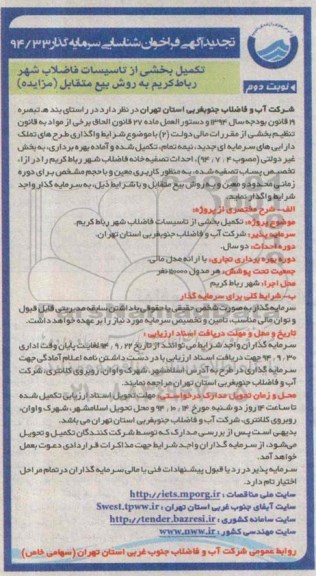 تجدید آگهی فراخوان شناسایی سرمایه گذار ۹۴/۳۳
نوبت دوم
تکمیل بخشی از تاسیسات فاضلاب شهر
رباط‌کریم به روش بیع متقابل (مزایده)
شرکت آب و فاضلاب جنوبغربی استان تهران در نظر دارد در راستای بند هـ تبصره
۱۹ قانون بودجه سال ۱۳۹۴ و دستور العمل ماده ۲۷ قانون الحاق برخی از مواد به قانون
تنظیم بخشی از مقررات مالی دولت (۲) با موضوع شرایط واگذاری طرح های تملک
دارایی های سرمایه ای جدید، نیمه تمام، تکمیل شده و آماده بهره برداری، به بخش
غیر دولتی (مصوب ۹۴،۰۷،۰۴)، احداث تصفیه خانه فاضلاب شهر رباط کریم را در ازاء
تخصیص پساب تصفیه شده، به منظور کاربری معین و با حجم مشخص برای دوره
زمانی محدود و معین و به روش بیع متقابل و با شرایط ذیل، به سرمایه گذار واجد
شرایط واگذار نماید.
الف - شرح مختصری از پروژه:
موضوع پروژه: تکمیل بخشی از تاسیسات فاضلاب شهر رباط کریم.
سرمایه پذیر: شرکت آب و فاضلاب جنوبغربی استان تهران.
دوره احداث: دو سال.
دوره بهره برداری تجاری: با ارائه مدل مالی.
جمعیت تحت پوشش: هر مدول ۵۰۰۰۰ نفر
محل اجرا: شهر رباط کریم
ب- شرایط کلی برای سرمایه گذار
سرمایه گذار به صورت شخص حقیقی یا حقوقی با داشتن سابقه مدیریتی قابل قبول
و توان مالی مناسب، تأمین و تخصیص سرمایه مورد نیاز را بر عهده خواهد داشت.
تاریخ و محل و مهلت دریافت اسناد ارزیابی:
سرمایه گذاران واجد شرایط می توانند از تاریخ ۹۴،۰۹،۲۲ لغایت پایان وقت اداری
۹۴،۰۹،۳۰ جهت دریافت اسناد ارزیابی با در دست داشتن نامه اعلام آمادگی جهت
سرمایه گذاری در طرح به آدرس اسلامشهر، شهرک واوان، روبروی کلانتری، شرکت
آب و فاضلاب جنوبغربی استان تهران مراجعه نمایند.
محل و زمان تحویل مدارک درخواستی: مهلت تحویل اسناد ارزیابی تکمیل شده
تا ساعت ۱۴ روز دو شنبه مورخ ۹۴،۱۰،۱۴ و محل تحویل اسلامشهر، شهرک واوان،
روبروی کلانتری، شرکت آب و فاضلاب جنوبغربی استان تهران می باشد.
بدیهی است پس از بررسی مدارک که توسط شرکت کنندگان تکمیل و تحویل
می شود، از سرمایه گذاران واجد شرایط جهت مذاکرات قراردادی دعوت بعمل
خواهد آمد.
سرمایه پذیر در رد یا قبول پیشنهادات فنی یا مالی سرمایه گذاران در تمام مراحل
اختیار تام دارد.
سایت ملی مناقصات : http://iets.mporg.ir
سایت آبفای جنوب غربی استان تهران : Swest.tpww.ir
سایت سامانه کشوری : http://tender.bazresi.ir
سایت مهندسی کشور : www.nww.ir
روابط عمومی شرکت آب و فاضلاب جنوب غربی استان تهران (سهامی خاص)